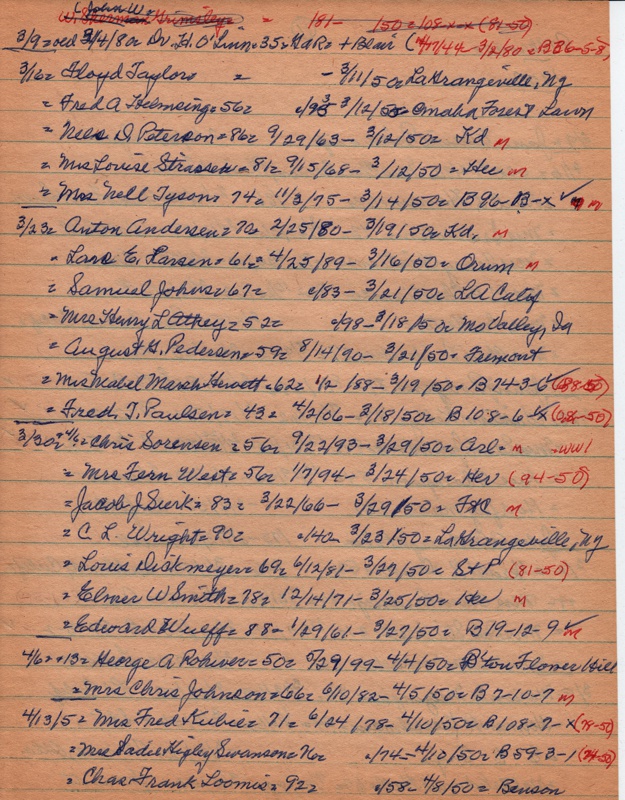 (John W =
W. Sherman Grimsley = = 181- 150=108-x-x (81-50)
3/9=ord 3/4/80= Dr. H. O'Linn=35= + Blair ( 3/2/80 = B B6-5-8)
3/16= Floyd Taylor = = - 3/11/50= LaGrangeville, Ny
= Fred A Helmsing=56= c/93 3/12/50= Omaha Forest Lawn
= Nels D. Peterson=86= 9/29/63- 3/12/50= Kd m
= Mrs Louise Strassen=81= 9/15/68- 3/12/50= Her m
= Mrs Nell Tyson= 74= 11/3/75- 3/14/50= B 96-B-x ✓ m
3/23= Anton Andersen=70= 2/25/80- 3/19/50= Kd. m
= Lars E. Larsen= 61= 4/25/89- 3/16/50= Orum m
= Samuel Johns=67= c/83- 3/21/50= LA Caty
= Mrs Henry L Athey=52= c/98-3/18/50= Mo Valley, Ia
= August H. Pedersen=59= 8/14/90- 3/21/50= Fremont
= Mrs Mabel Marsh Hewett=62= 1/2/88-3/19/50= B 74-3-6 ✓ (88-50)
= Fred. T. Paulsen= 43= 4/2/06-3/18/50= B 108-6-x (06-50)
3/30 & 4/6= Chris Sorensen=56= 9/22/93-3/29/50= Arl= m =WW1
= Mrs Fern West=56= 1/7/94- 3/24/50= Her (94-50)
= Jacob J. Sierk= 83= 3/22/66- 3/29/50= FtC m
= C. L. Wright=90= c/40- 3/23/50= LaGrangeville, Ny
= Louis Dickmeyer=69= 6/12/81- 3/27/50= St P (81-50)
= Elmer W Smith=78= 12/14/71-3/25/50= Her m
= Edward Wulff= 88= 1/29/61-3/27/50= B 19-12-9 ✓ m
4/6=+13= George A Rohwer=50= 5/29/99-4/4/50= B Tou Flower Hill
= Mrs Chris Johnson=66= 6/10/82-4/5/50= B 7-10-7 m
4/13/5= Mrs Fred Kubie= 71= 6/24/78-4/10/50= B 108-7-x (78-50)
= Mrs Sadie Higley Swanson=76= c/74-4/10/50= B 59-3-1 (74-50)
= Chas. Frank Loomis=92= c/58- 4/8/50= Benson